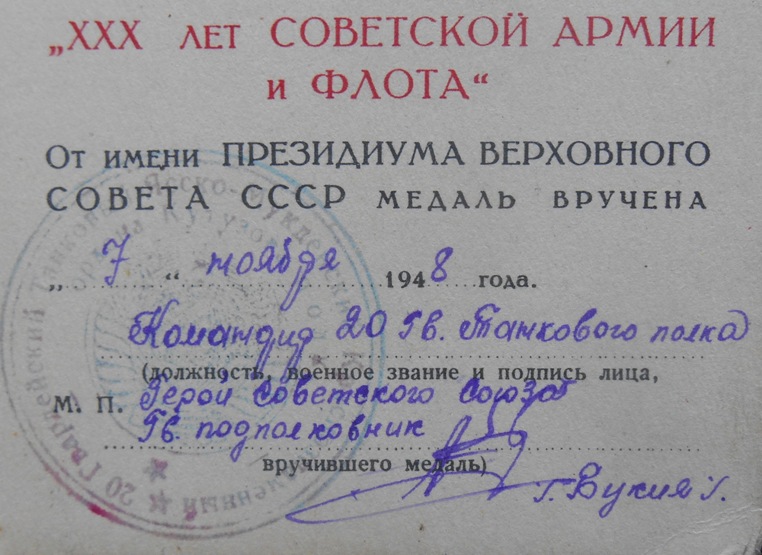 „XXX ЛЕТ СОВЕТСКОЙ АРМИИ
и ФЛОТА“
От имени ПРЕЗИДИУМА ВЕРХОВНОГО
СОВЕТА СССР МЕДАЛЬ ВРУЧЕНА
„ 7 “ ноября 1948 года.
Командир 20 Гв. Танкового полка
(должность, военное звание и подпись лица,
М. П. Герой Советского Союза
Гв. подполковник
вручившего медаль)
20 Гвардейский Танковый Ясско-Мукденский
ордена Кутузова полк